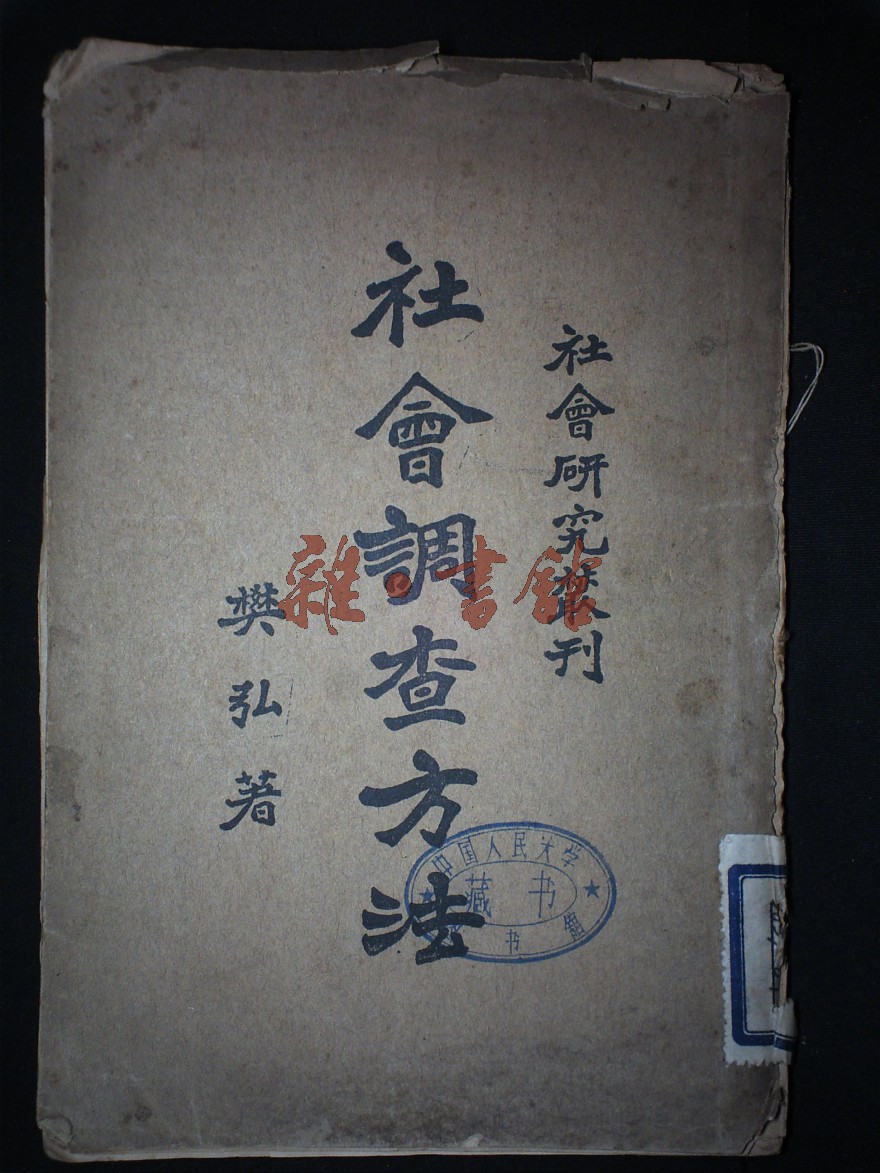 社會研究叢刊
社會調查方法
樊弘著
雜·書館
中国人民大学
藏书
图书馆